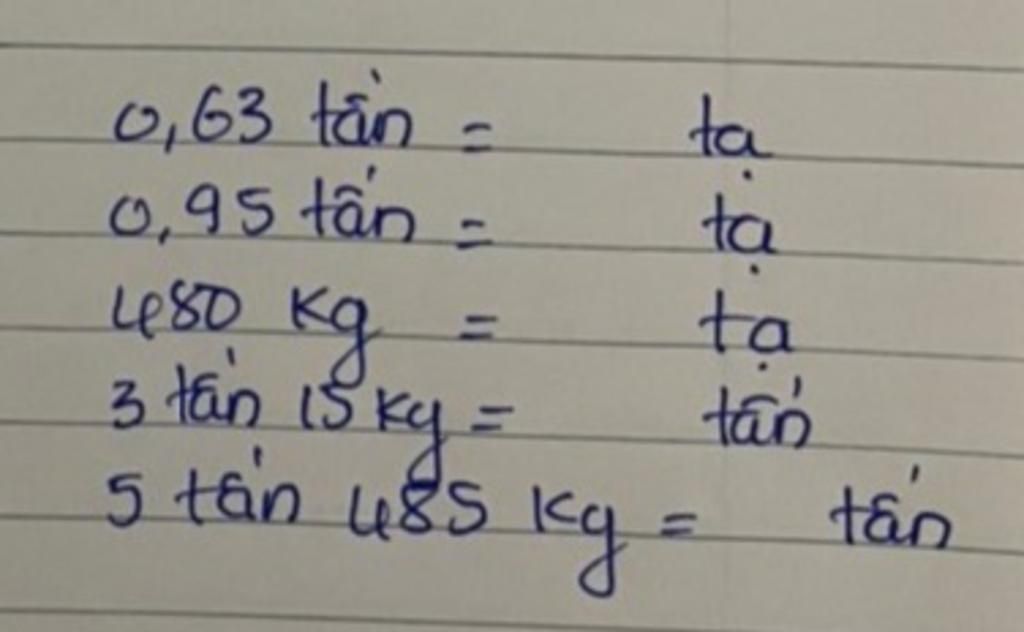 0,63 tấn = tạ
0,95 tấn = tạ
480 kg = tạ
3 tấn 15 kg = tấn
5 tấn 485 kg = tấn